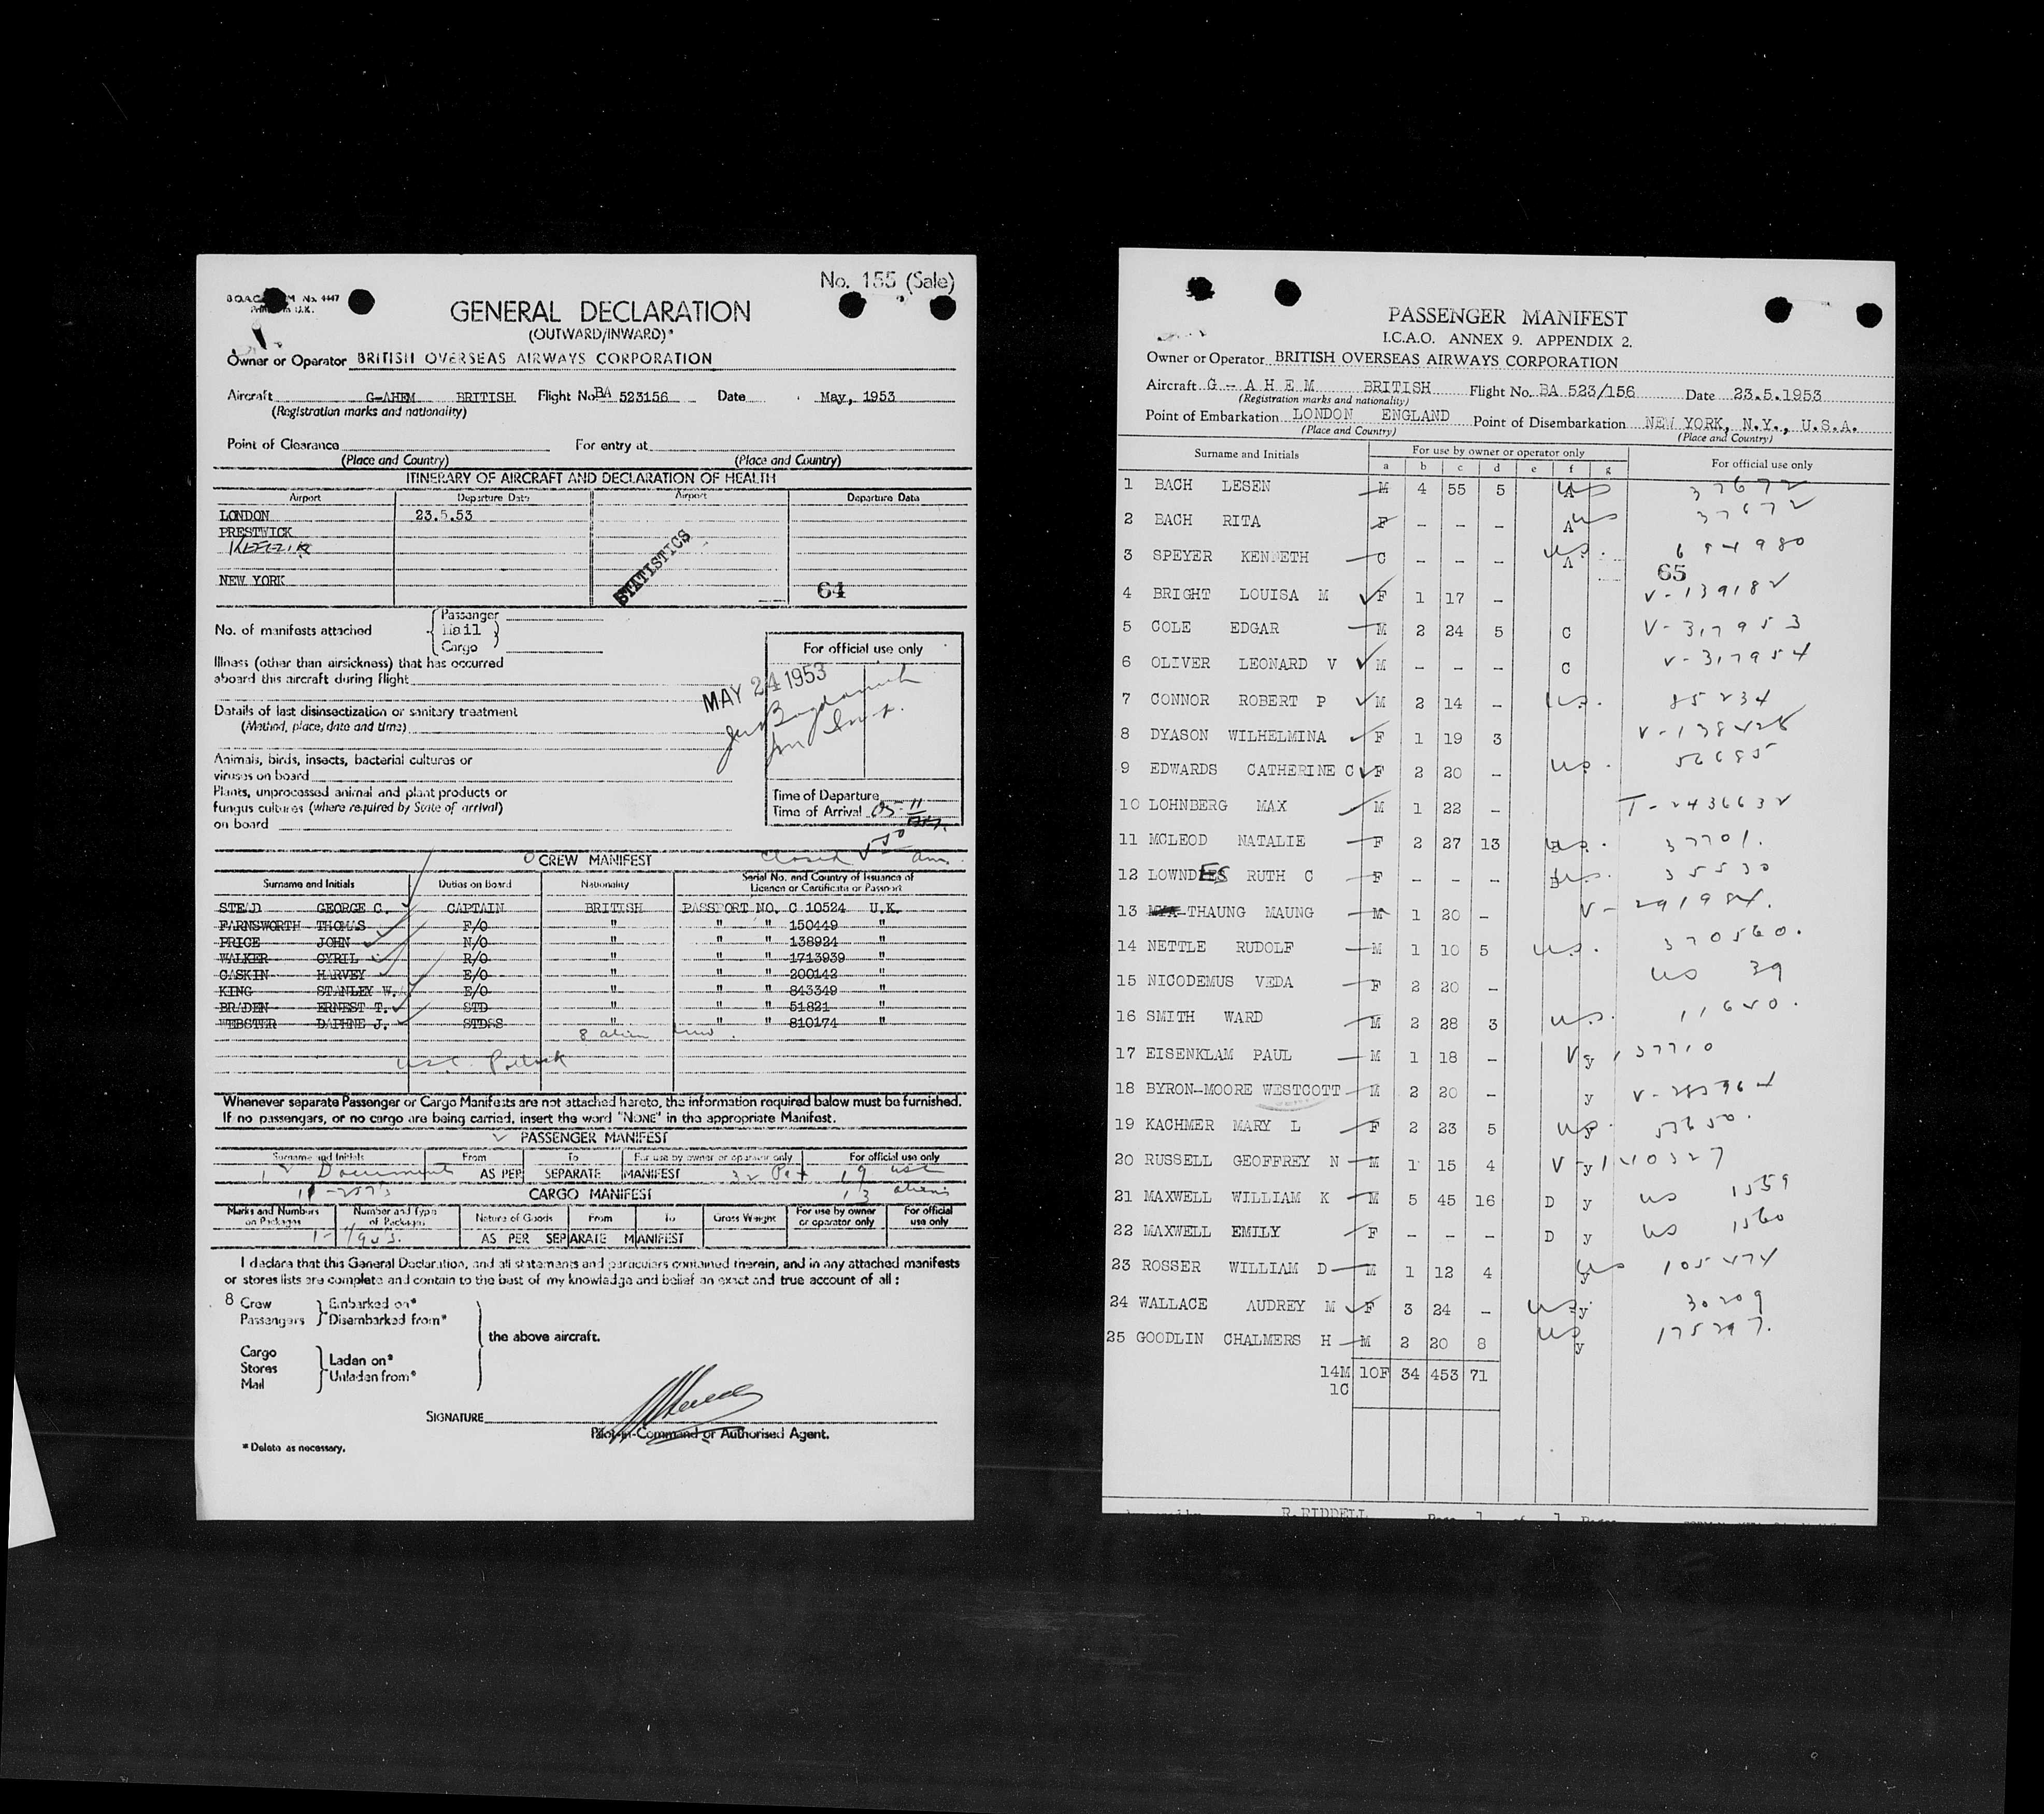 No. 155 (Sale)
B.O.A.C. No. 4447
GENERAL DECLARATION
(OUTWARD/INWARD)*
Owner or Operator BRITISH OVERSEAS AIRWAYS CORPORATION
Aircraft G-AHEM BRITISH Flight No. BA 523156 Date May, 1953
(Registration marks and nationality)
Point of Clearance For entry at
(Place and Country) (Place and Country)
ITINERARY OF AIRCRAFT AND DECLARATION OF HEALTH
Airport Departure Date Airport Departure Date
LONDON 23.5.53
PRESTWICK
KEFLIK
NEW YORK
STATISTICS
64
No. of manifests attached Passenger
Mail
Cargo
Illness (other than airsickness) that has occurred
aboard this aircraft during flight
Details of last disinsectization or sanitary treatment
(Method, place, date and time)
Animals, birds, insects, bacterial cultures or
viruses on board
Plants, unprocessed animal and plant products or
fungus cultures (where required by State of arrival)
on board
For official use only
MAY 24 1953
Time of Departure
Time of Arrival 05 11
closed 550 am.
CREW MANIFEST
Surname and Initials Duties on Board Nationality Serial No. and Country of Issuance of
Licence or Certificate or Passport
STEAD GEORGE C. CAPTAIN BRITISH PASSPORT NO. C 10524 U.K.
FARNSWORTH THOMAS F/O " " " 150449 "
PRICE JOHN N/O " " " 138924 "
WALKER CYRIL R/O " " " 1713939 "
GASKIN HARVEY E/O " " " 200142 "
KING STANLEY W. E/O " " " 843349 "
BRADEN ERNEST T. STD " " " 51821 "
WEBSTER DAPHNE J. STDSS " " " 810174 "
8 alien
Whenever separate Passenger or Cargo Manifests are not attached hereto, the information required below must be furnished.
If no passengers, or no cargo are being carried, insert the word "NONE" in the appropriate Manifest.
PASSENGER MANIFEST
Surname and Initials From To For use by owner or operator only For official use only
12 Documents AS PER SEPARATE MANIFEST 32 19 usc
11-257's CARGO MANIFEST 13 aliens
Marks and Numbers on Packages Number and Type of Packages Nature of Goods From To Gross Weight For use by owner or operator only For official use only
AS PER SEPARATE MANIFEST
I declare that this General Declaration, and all statements and particulars contained therein, and in any attached manifests
or stores lists are complete and contain to the best of my knowledge and belief an exact and true account of all:
8 Crew Embarked on*
Passengers Disembarked from*
the above aircraft.
Cargo
Stores Laden on*
Mail Unladen from*
SIGNATURE
Pilot-in-Command or Authorised Agent.
* Delete as necessary.
PASSENGER MANIFEST
I.C.A.O. ANNEX 9. APPENDIX 2.
Owner or Operator BRITISH OVERSEAS AIRWAYS CORPORATION
Aircraft G - A H E M BRITISH Flight No. BA 523/156 Date 23.5.1953
(Registration marks and nationality)
Point of Embarkation LONDON ENGLAND Point of Disembarkation NEW YORK, N.Y., U.S.A.
(Place and Country) (Place and Country)
Surname and Initials For use by owner or operator only For official use only
a b c d e f g
1 BACH LESEN M 4 55 5 A us 37672
2 BACH RITA F - - - A us 37672
3 SPEYER KENNETH C - - - A us. 694980
65
4 BRIGHT LOUISA M F 1 17 - V-139182
5 COLE EDGAR M 2 24 5 C V-317953
6 OLIVER LEONARD V M - - - C V-317954
7 CONNOR ROBERT P M 2 14 - us. 85234
8 DYASON WILHELMINA F 1 19 3 V-138428
9 EDWARDS CATHERINE C F 2 20 - us. 56685
10 LOHNBERG MAX M 1 22 - T-2436632
11 MCLEOD NATALIE F 2 27 13 us. 37701.
12 LOWNDES RUTH C F - - - us. 35530
13 MYA-THAUNG MAUNG M 1 20 - V-291984.
14 NETTLE RUDOLF M 1 10 5 us. 370560.
15 NICODEMUS VEDA F 2 20 - us 39
16 SMITH WARD M 2 28 3 us. 11650.
17 EISENKLAM PAUL M 1 18 - V y 137710
18 BYRON-MOORE WESTCOTT M 2 20 - y V-285964
19 KACHMER MARY L F 2 23 5 us. 53650.
20 RUSSELL GEOFFREY N M 1 15 4 V-y 140327
21 MAXWELL WILLIAM K M 5 45 16 D y us 1559
22 MAXWELL EMILY F - - - D y us 1560
23 ROSSER WILLIAM D M 1 12 4 y us 105474
24 WALLACE AUDREY M F 3 24 - us y 30209
25 GOODLIN CHALMERS H M 2 20 8 us y 175297.
14M 10F 34 453 71
1C
R. RIDDELL Page 1 of 1 Pages